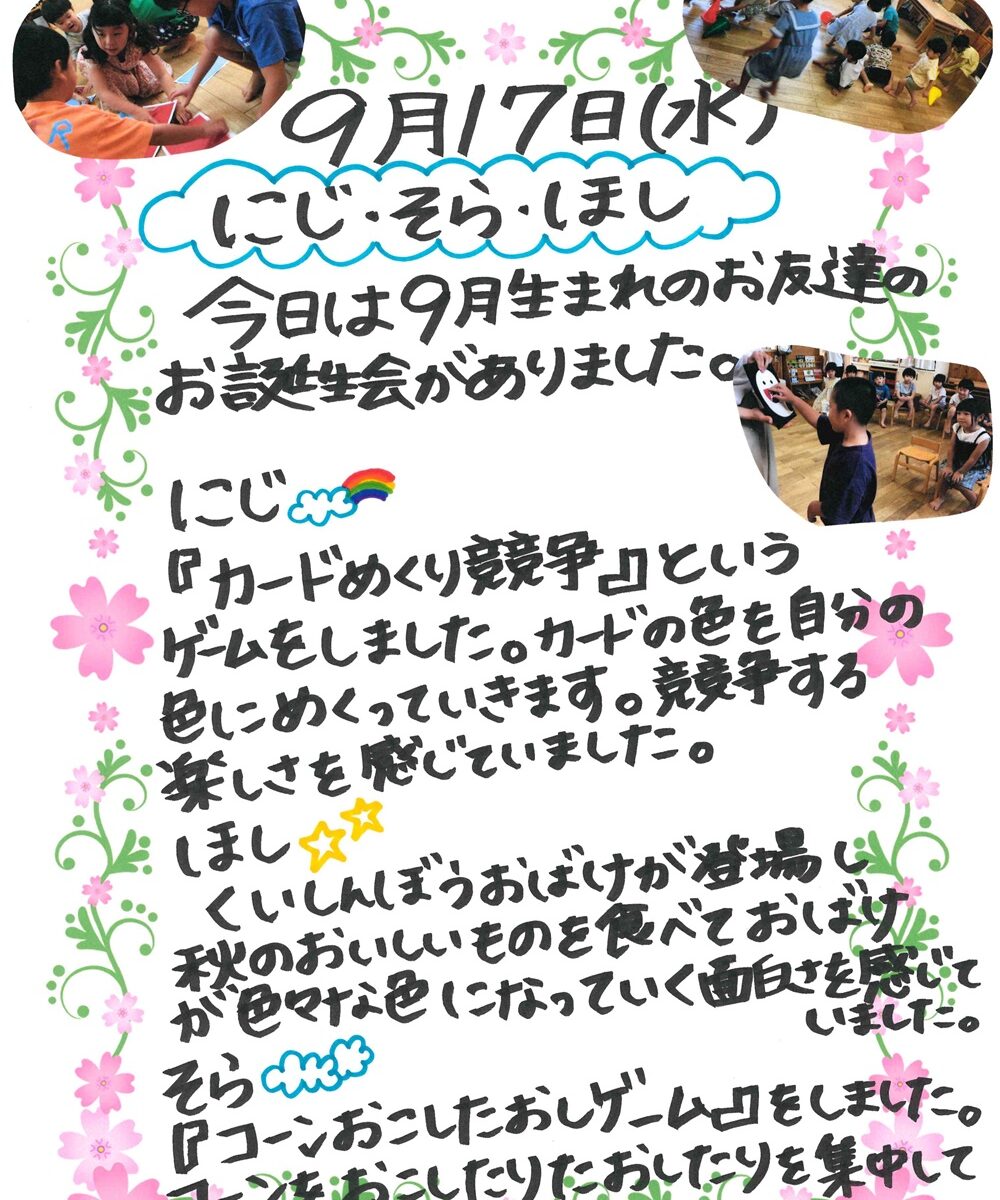 9月17日(水)
にじ・そら・ほし
今日は9月生まれのお友達の
お誕生会がありました。
にじ
『カードめくり競争』という
ゲームをしました。カードの色を自分の
色にめくっていきます。競争する
楽しさを感じていました。
ほし
くいしんぼうおばけが登場し
秋のおいしいものを食べておばけ
が色々な色になっていく面白さを感じて
いました。
そら
『コーンおこしたおしゲーム』をしました。
コーンをおこしたりたおしたりを集中して